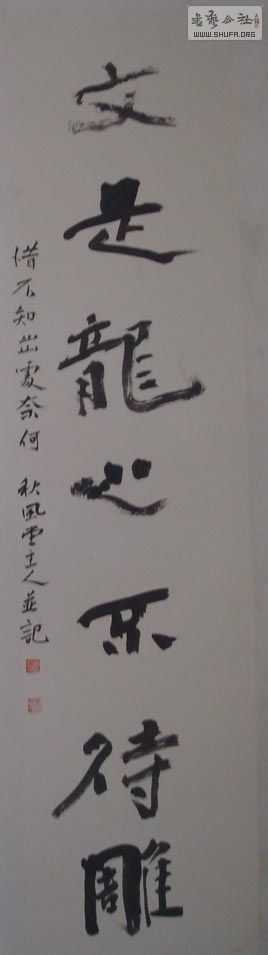 文是龍心不待雕
惜不知出處奈何 秋風堂主人並記
書藝公社
WWW.SHUFA.ORG